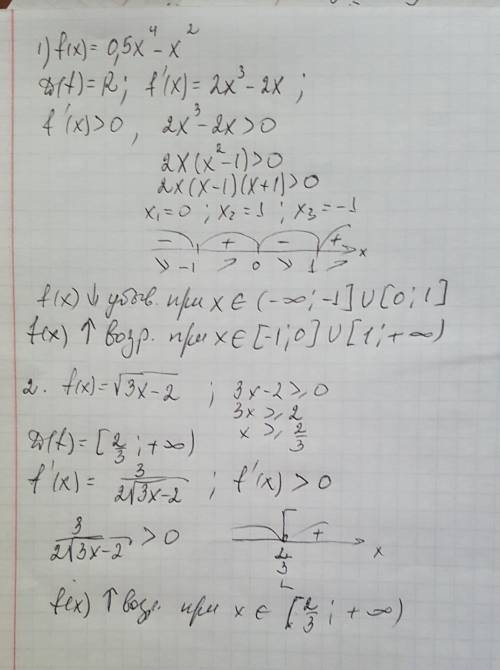 1) f(x) = 0,5x⁴ - x²
D(f) = R; f'(x) = 2x³ - 2x;
f'(x) > 0, 2x³ - 2x > 0
2x(x² - 1) > 0
2x(x-1)(x+1) > 0
x₁ = 0; x₂ = 1; x₃ = -1
- + - + x
↘ -1 ↗ 0 ↘ 1 ↗
f(x) ↓ убыв. при x ∈ (-∞; -1] ∪ [0; 1]
f(x) ↑ возр. при x ∈ [-1; 0] ∪ [1; +∞)
2. f(x) = √3x-2 ; 3x-2 ≥ 0
3x ≥ 2
x ≥ 2/3
D(f) = [2/3; +∞)
f'(x) = 3/2√3x-2 ; f'(x) > 0
3/2√3x-2 > 0
+ x
f(x) ↑ возр. при x ∈ [2/3; +∞)